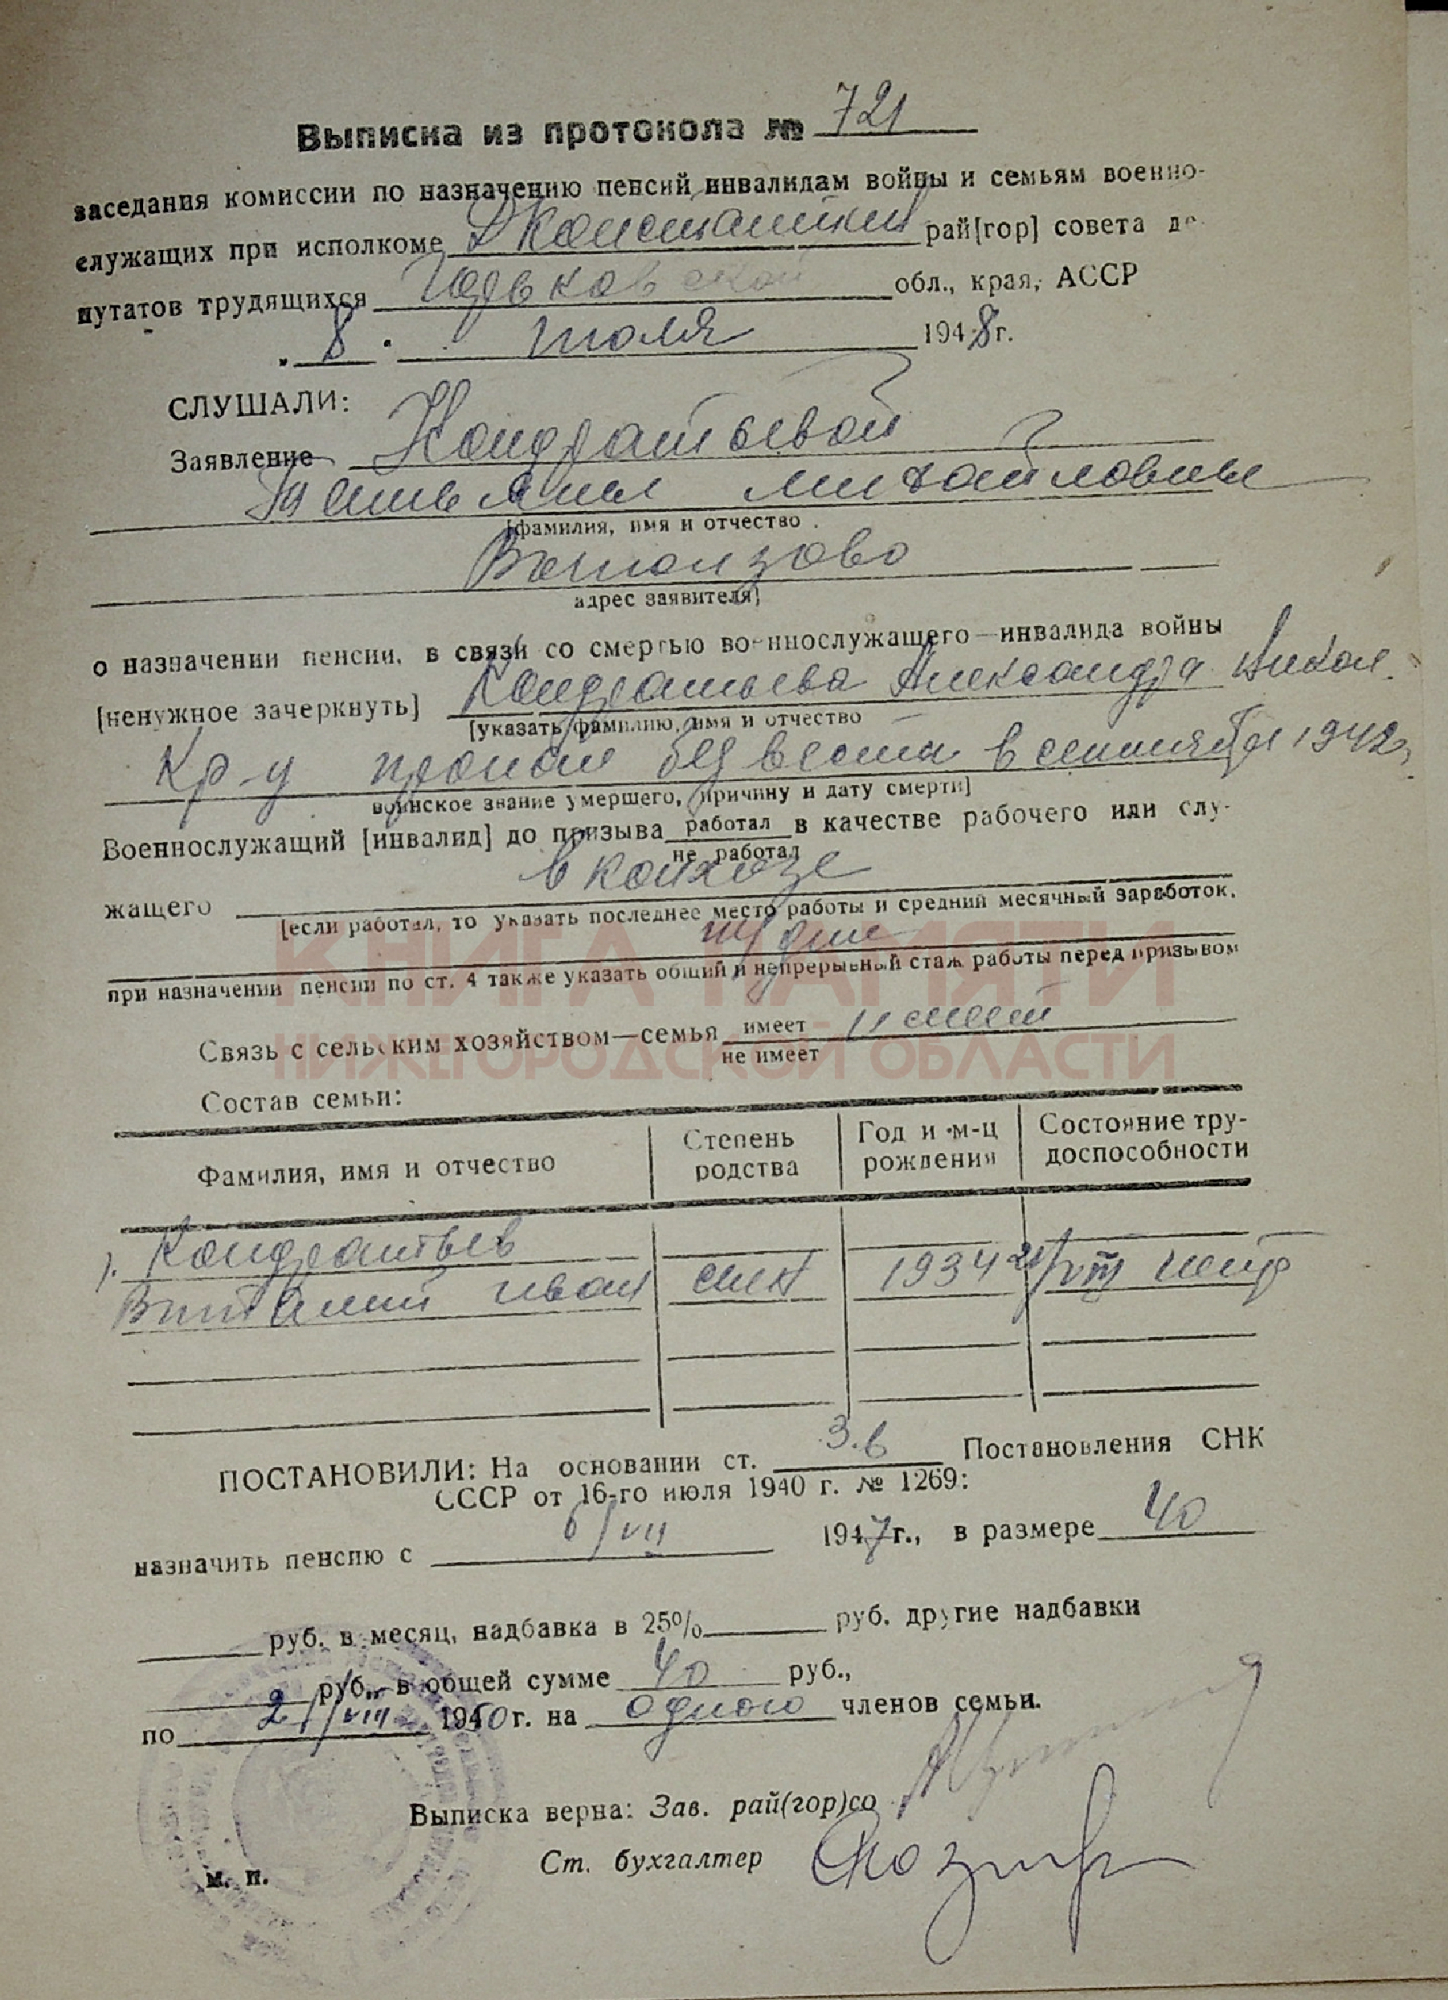 Выписка из протокола № 721
заседания комиссии по назначению пенсий инвалидам войны и семьям военно-
служащих при исполкоме Д Константин рай[гор] совета де-
путатов трудящихся Горьковской обл., края, АССР
„ 8 " июля 1948 г.
СЛУШАЛИ:
Заявление Кондратьевой
Татьяны Михайловны
[фамилия, имя и отчество
адрес заявителя]
о назначении пенсии, в связи со смертью военнослужащего—инвалида войны
[ненужное зачеркнуть] Кондратьева Александра Никол.
[указать фамилию, имя и отчество
Кр-ц пропал без вести в сентябре 1942 г.
воинское звание умершего, причину и дату смерти]
Военнослужащий [инвалид] до призыва работал в качестве рабочего или слу-
не работал
жащего в колхозе
[если работал, то указать последнее место работы и средний месячный заработок,
тр/дни
при назначении пенсии по ст. 4 также указать общий и непрерывный стаж работы перед призывом
КНИГА ПАМЯТИ
НИЖЕГОРОДСКОЙ ОБЛАСТИ
Связь с сельским хозяйством—семья имеет имеет
не имеет
Состав семьи:
Фамилия, имя и отчество Степень родства Год и м-ц рождения Состояние тру-доспособности
1. Кондратьев
Виталий Иван сын 1934 21/VIII
ПОСТАНОВИЛИ: На основании ст. 3.в Постановления СНК
СССР от 16-го июля 1940 г. № 1269:
назначить пенсию с 6/VII 1947 г., в размере 40
руб. в месяц, надбавка в 25% руб. другие надбавки
руб., в общей сумме 40 руб.,
по 21/VIII 1950 г. на одного членов семьи.
Выписка верна: Зав. рай(гор)со
Ст. бухгалтер
м. п.